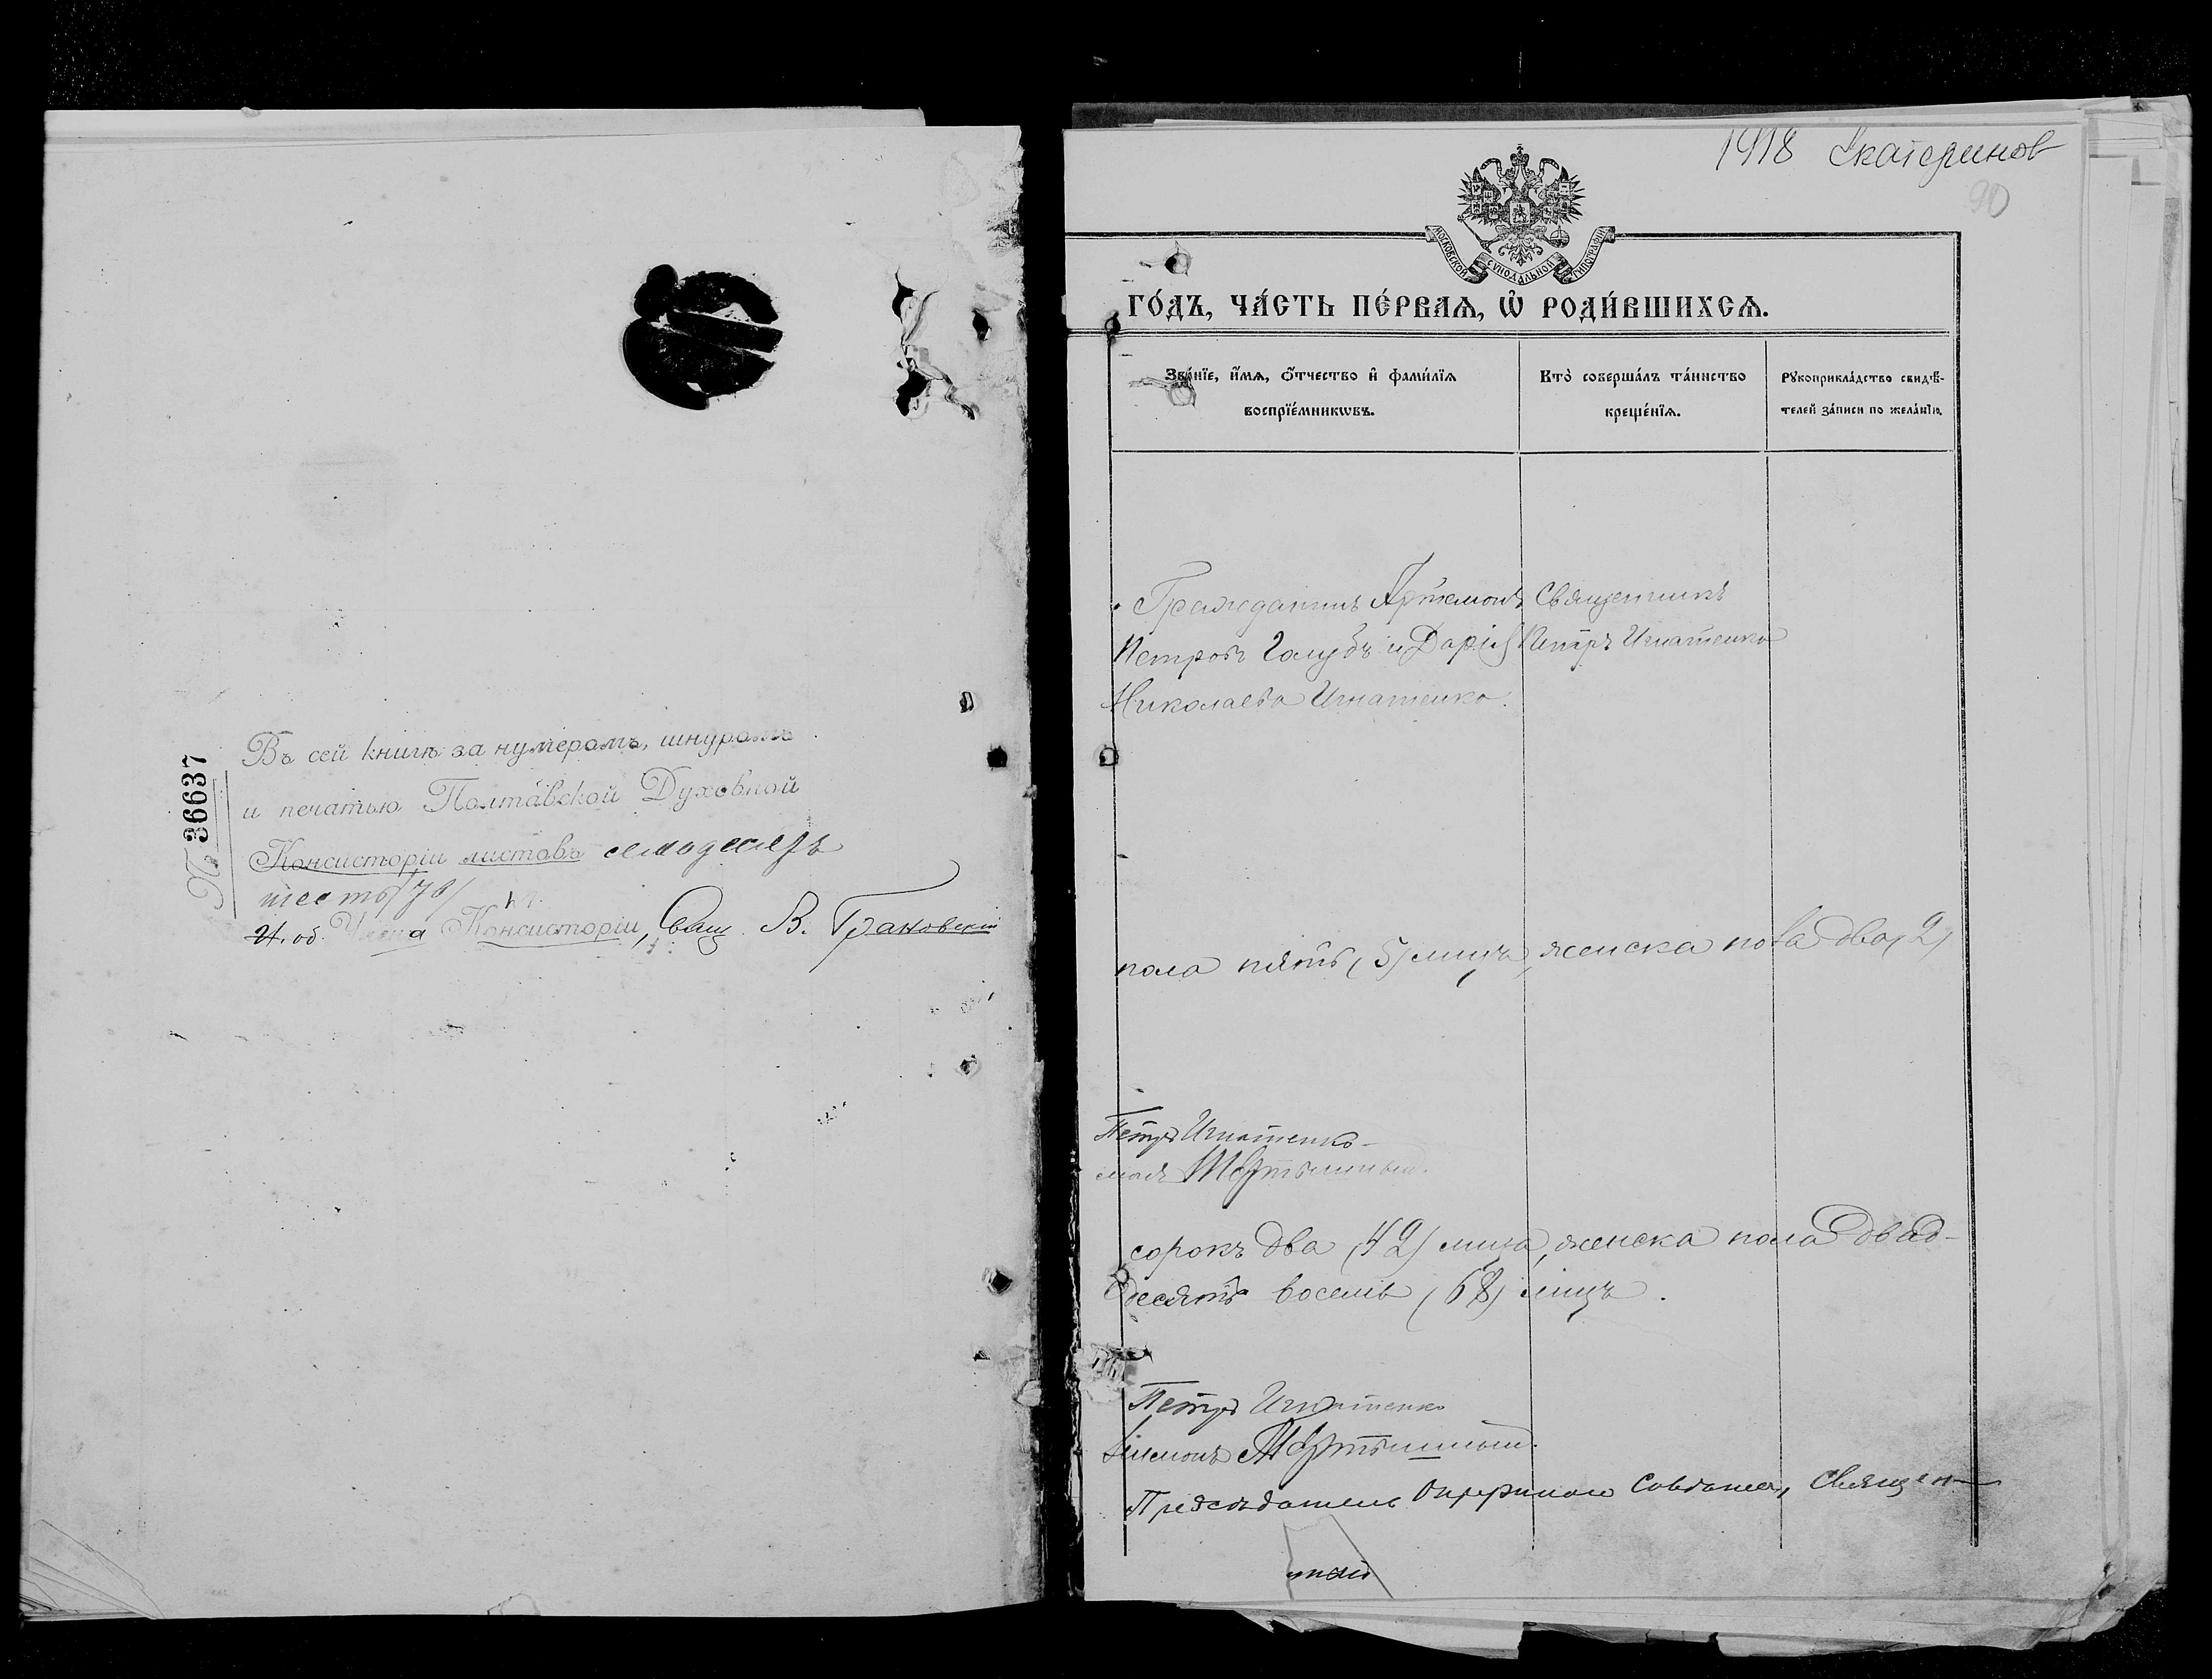 № 36637
Въ сей книгѣ за нумеромъ, шнуромъ
и печатью Полтавской Духовной
Консисторіи листовъ семьдесятъ
шесть /76/
И. об. Члена Консисторіи, Свящ. В. Грановскій
1918 Екатеринов
90
МОСКОВСКОЙ СѴНОДАЛЬНОЙ ТИПОГРАФІИ
ГО́ДЪ, ЧА́СТЬ ПЕ́РВАѦ, Ѡ҆ РОДИ́ВШИХСѦ.
Зва́нїе, и҆́мѧ, ѻ҆́тчество и҆ фами́лїѧ
воспрїе́мникѡвъ.
Кто̀ соверша́лъ та́инство
креще́нїѧ.
Рꙋкоприкла́дство свидѣ́-
телей за́писи по жела́нїю.
Гражданинъ Артемонъ
Петровъ Голубъ и Дарія
Николаева Игнатенко.
Священникъ
Петръ Игнатенко
пола пять (5) лицъ, женска пола два (2)
Петръ Игнатенко
сорокъ два (42) лица, женска пола двад-
десятъ восемь (68) лицъ.
Петръ Игнатенко
Предсѣдатель Окружного Совѣта, Священ-